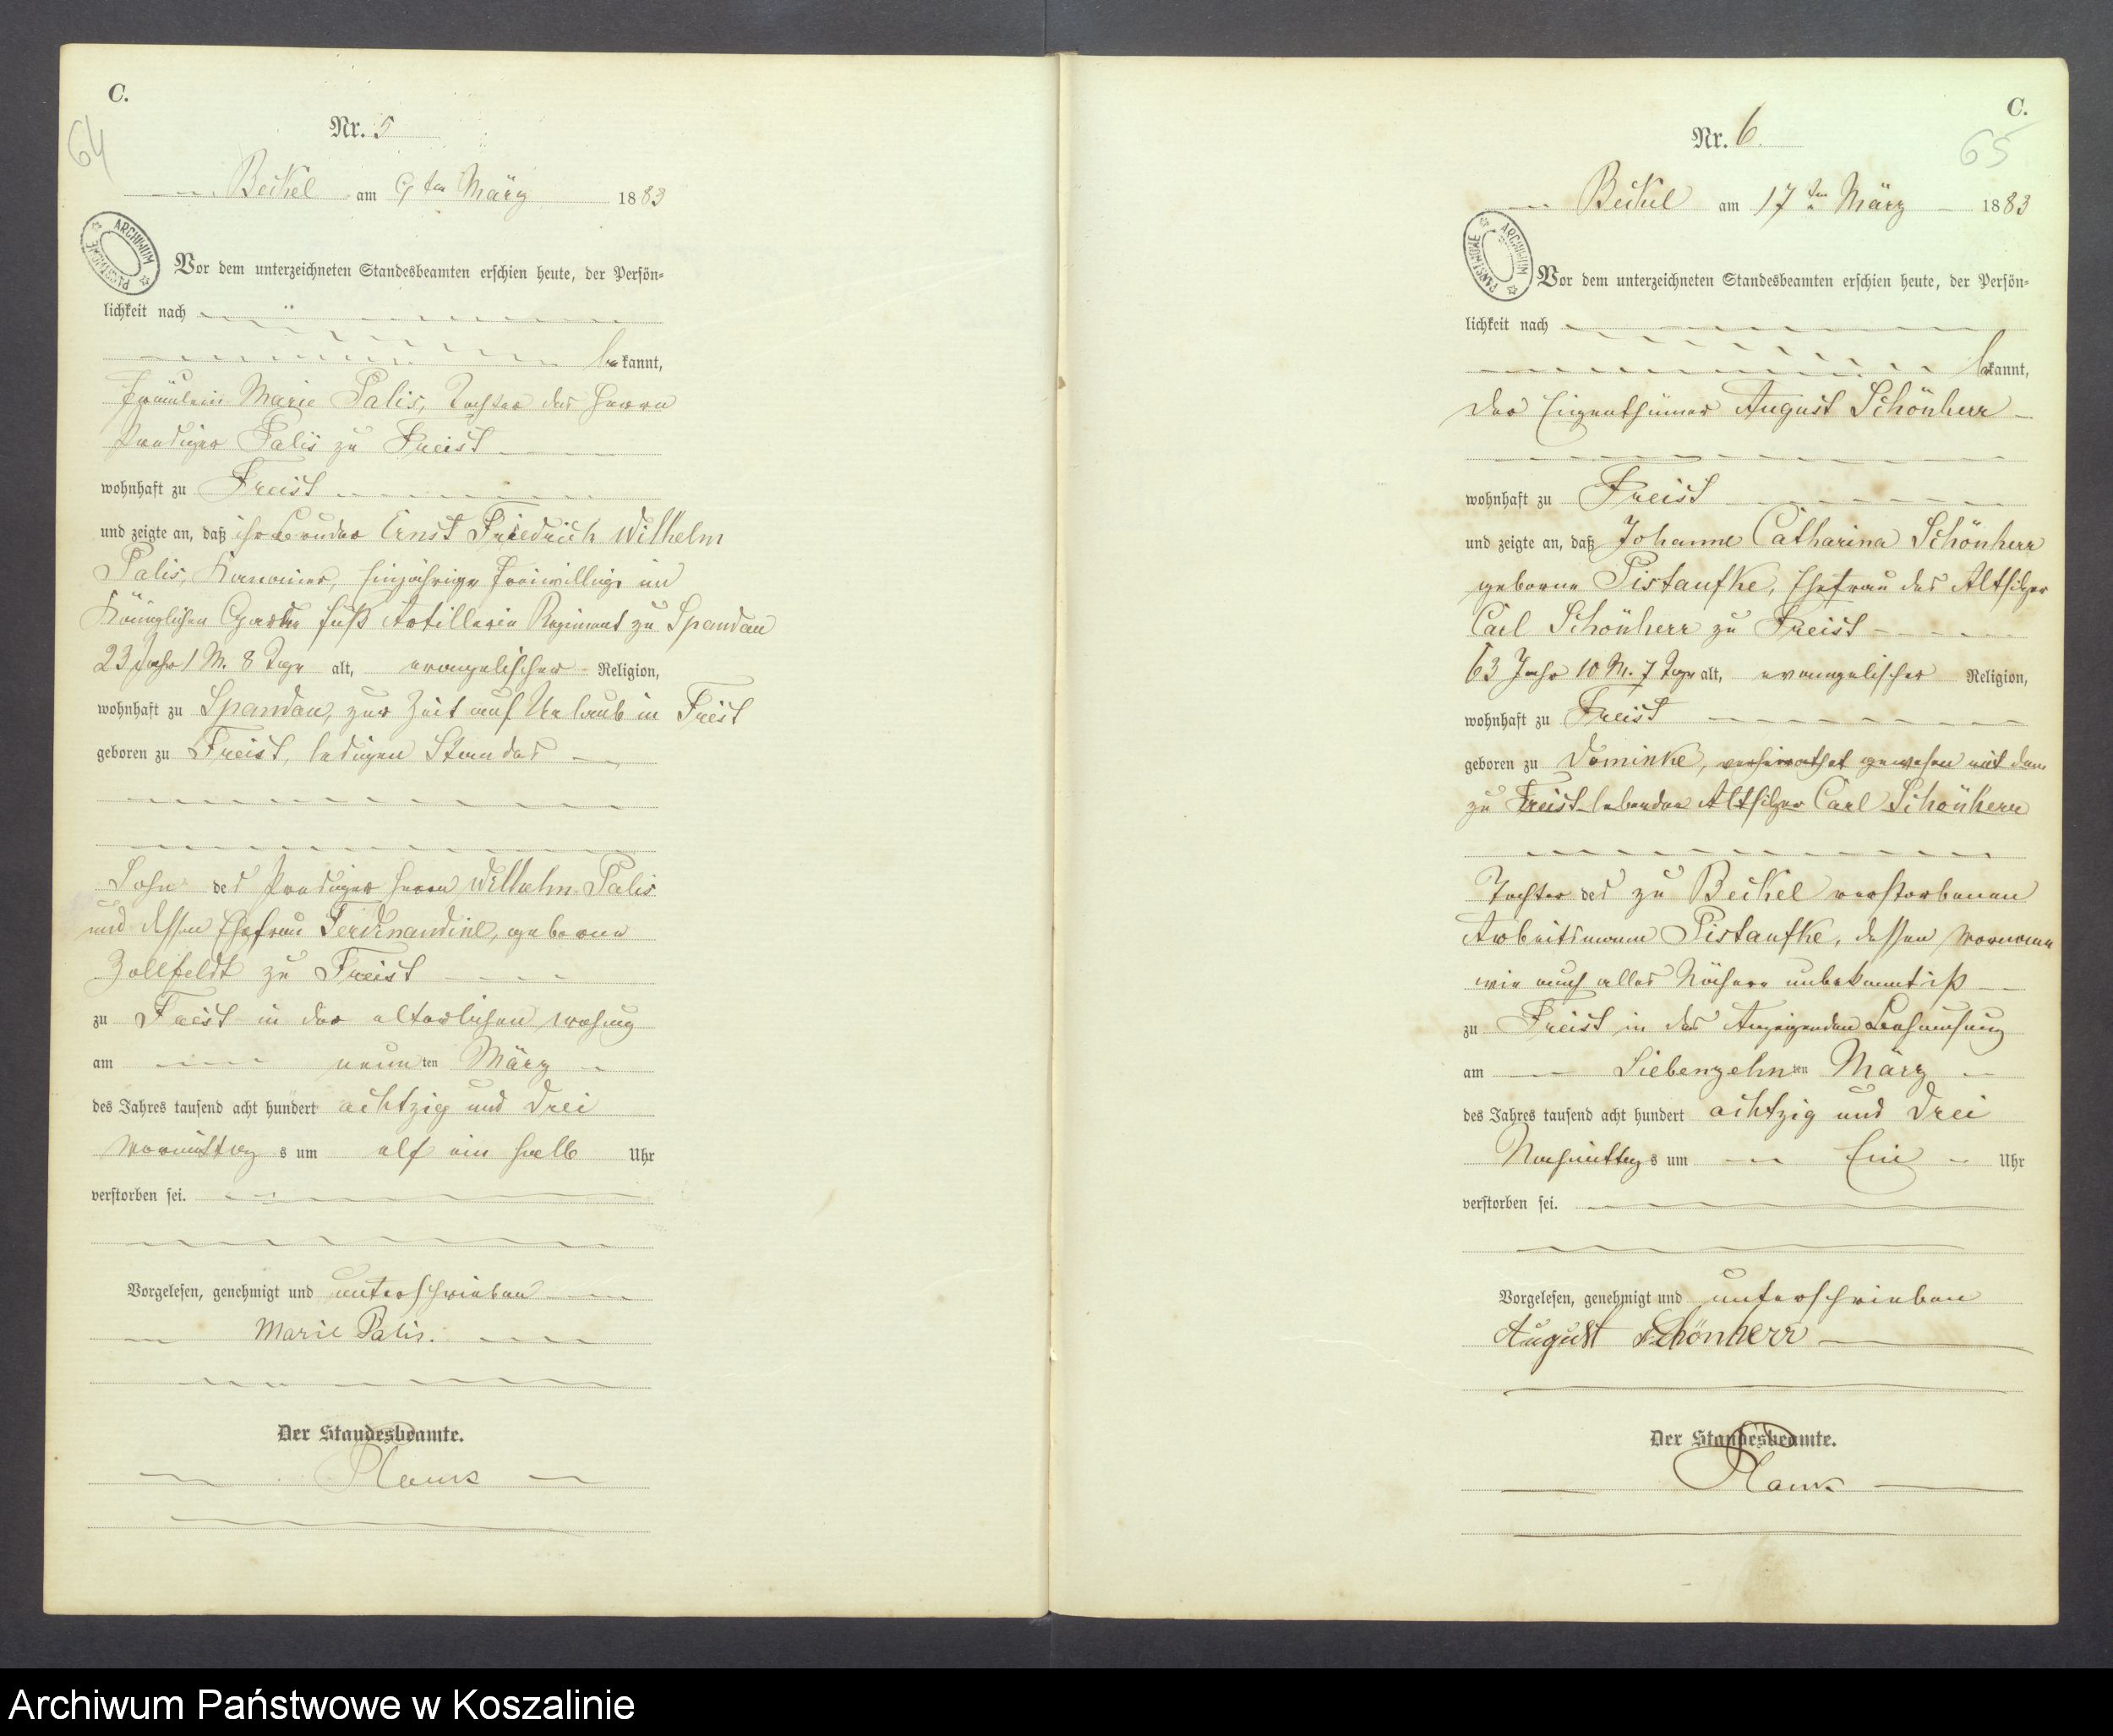 C.
64
Nr. 5
Beckel am 9ten März 1883
ARCHIWUM PAŃSTWOWE
Vor dem unterzeichneten Standesbeamten erschien heute, der Persön-
lichkeit nach
bekannt,
Fräulein Marie Palis, Tochter des Herrn
Prediger Palis zu Freist
wohnhaft zu Freist
und zeigte an, daß ihr Bruder Ernst Friedrich Wilhelm
Palis, Kanonier, Einjähriger Freiwilliger im
Königlichen Garde Fuß Artillerie Regiment zu Spandau
23 Jahr 1 M. 8 Tage alt, evangelischer Religion,
wohnhaft zu Spandau, zur Zeit auf Urlaub in Freist
geboren zu Freist, ledigen Standes
Sohn des Prediger Herrn Wilhelm Palis
und dessen Ehefrau Ferdinandine, geborne
Zollfeldt zu Freist
zu Freist in der elterlichen
am neunten März
des Jahres tausend acht hundert achtzig und drei
Vormittags um elf ein halb Uhr
verstorben sei.
Vorgelesen, genehmigt und unterschrieben
Marie Palis.
Der Standesbeamte.
C.
65
Nr. 6.
Beckel am 17ten März 1883
ARCHIWUM PAŃSTWOWE
Vor dem unterzeichneten Standesbeamten erschien heute, der Persön-
lichkeit nach
bekannt,
der Eigenthümer August Schönherr
wohnhaft zu Freist
und zeigte an, daß Johanne Catharina Schönherr
geborne Pistaufke, Ehefrau des Altsitzer
Carl Schönherr zu Freist
63 Jahr 10 M. 7 Tage alt, evangelischer Religion,
wohnhaft zu Freist
geboren zu Dominke, verheirathet gewesen mit dem
zu Freist lebenden Altsitzer Carl Schönherr
Tochter des zu Beckel verstorbenen
Arbeitsmann Pistaufke, dessen Vorname
wie auch alles Nähere unbekannt ist
zu Freist in des Anzeigenden Behausung
am Siebenzehnten März
des Jahres tausend acht hundert achtzig und drei
Nachmittags um Ein Uhr
verstorben sei.
Vorgelesen, genehmigt und unterschrieben
August Schönherr
Der Standesbeamte.
Archiwum Państwowe w Koszalinie